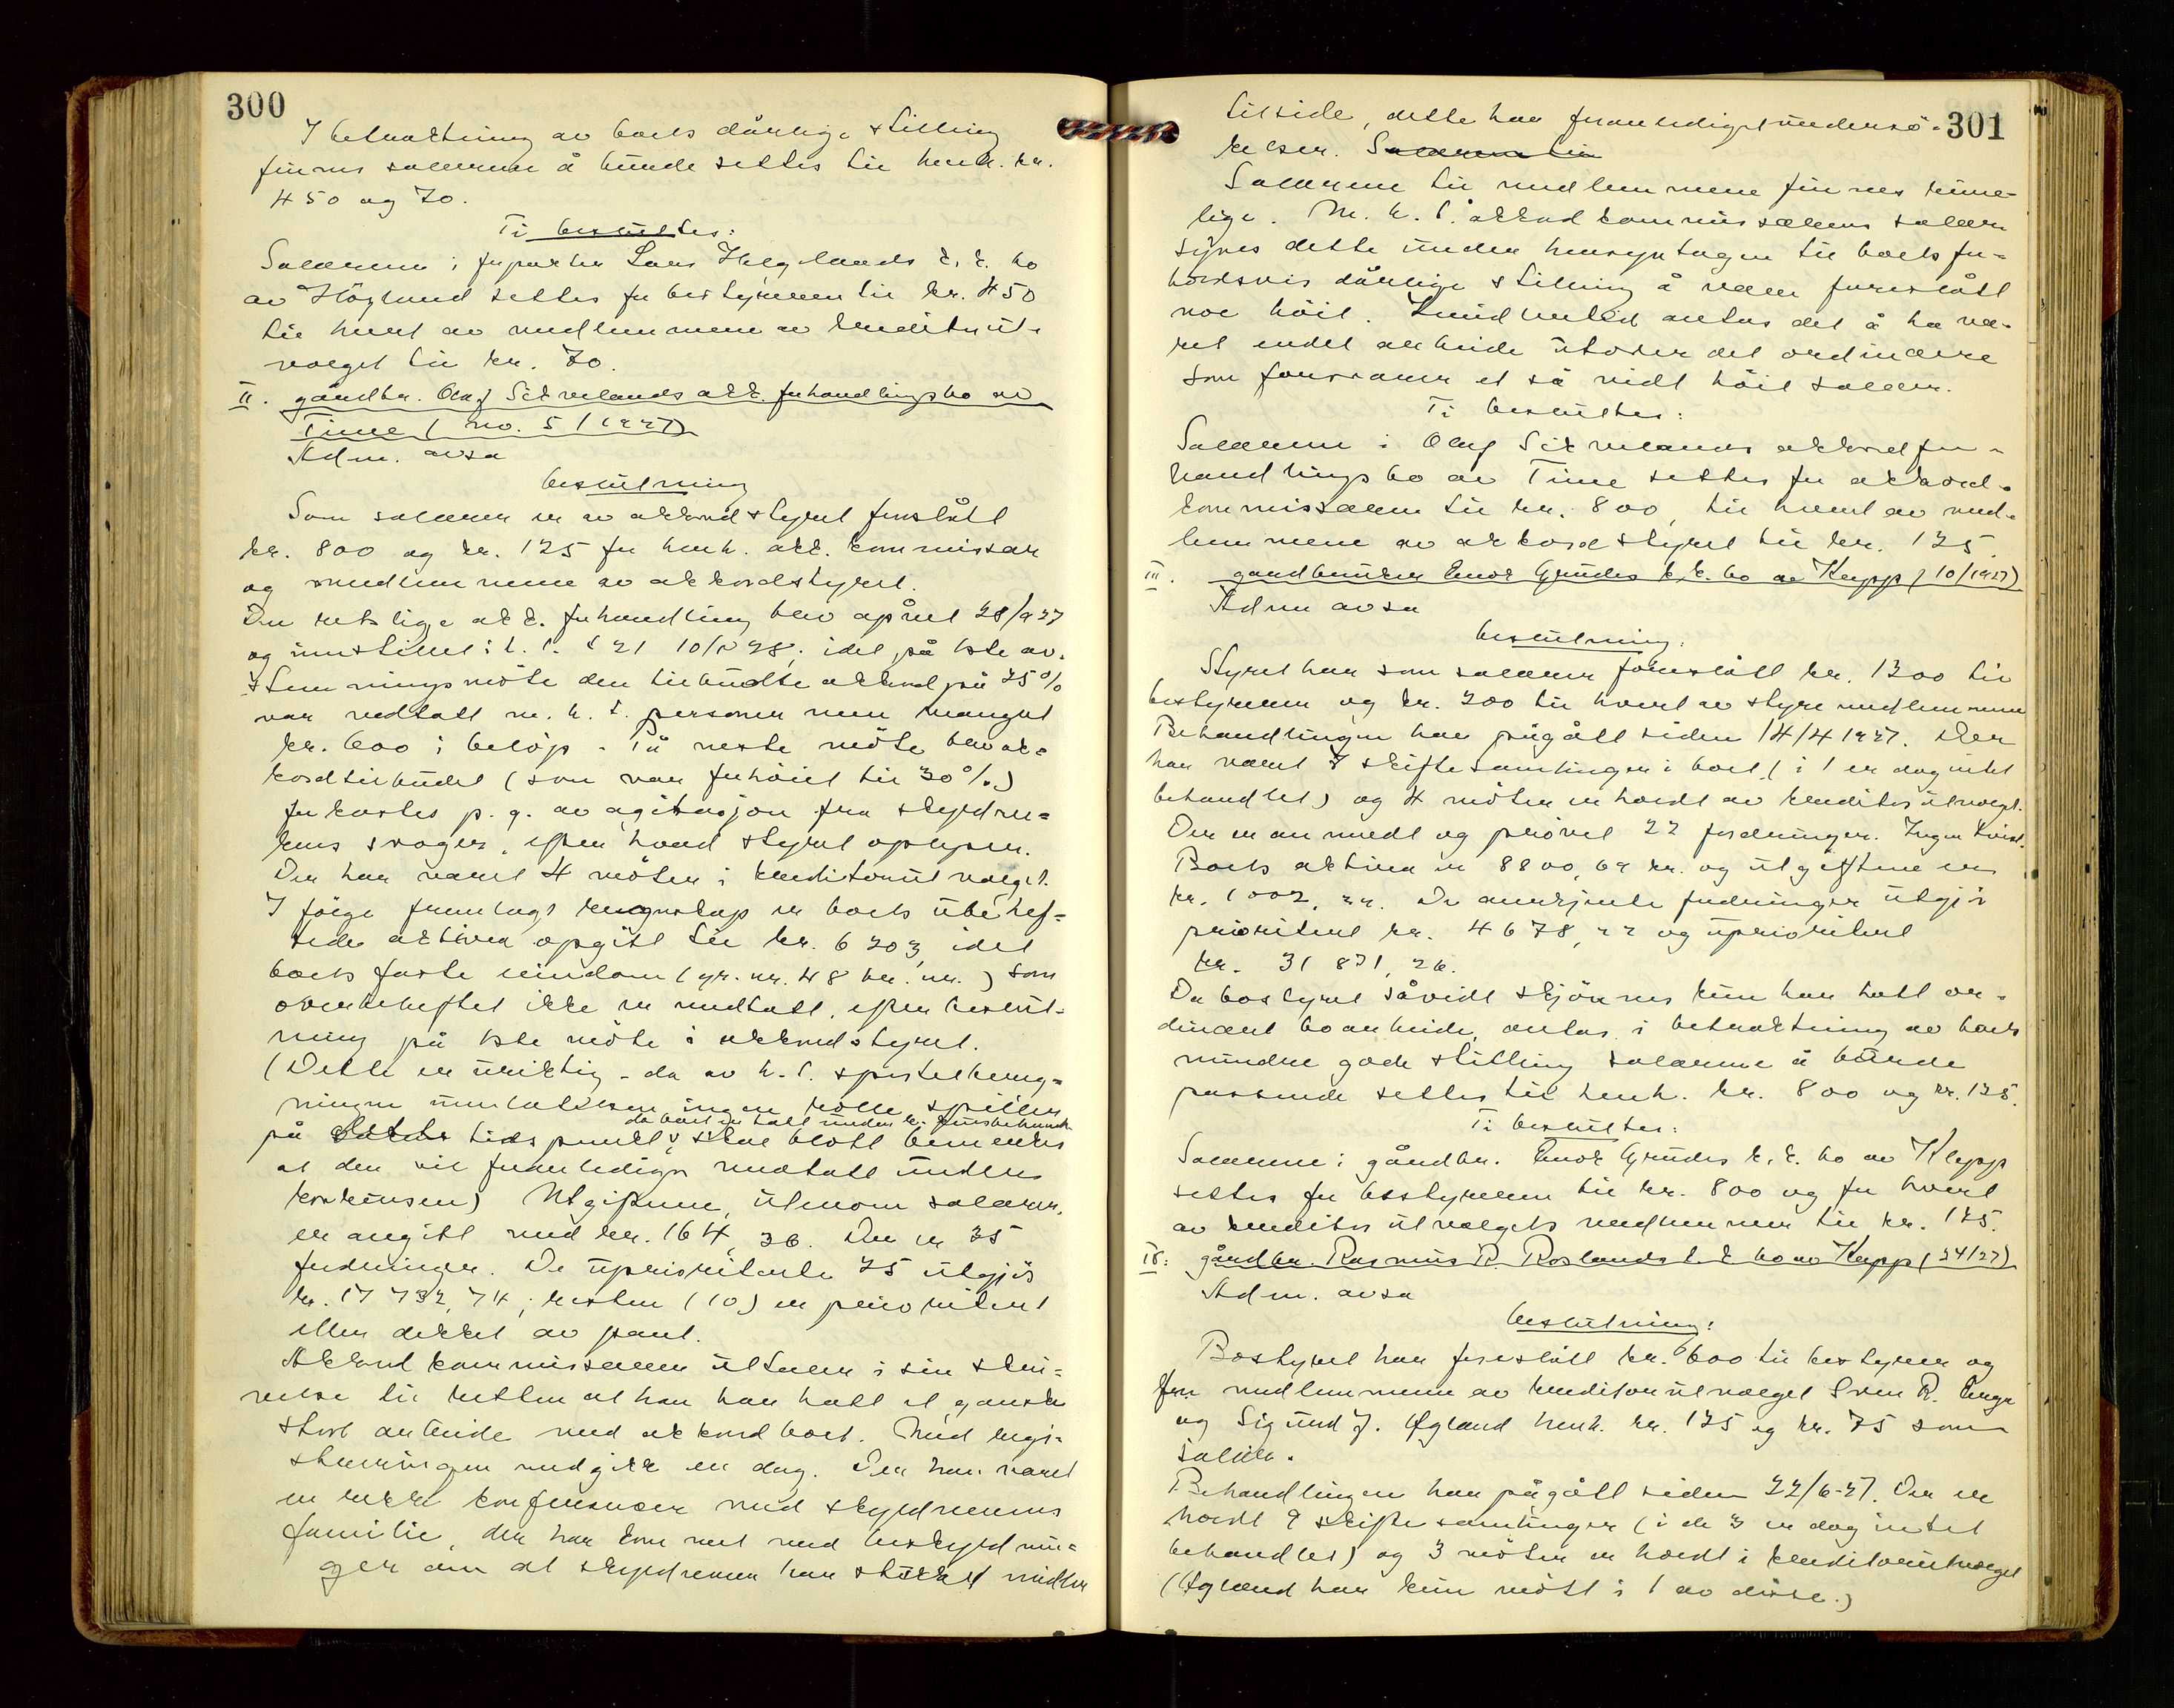 300
I betraktning av boets dårlige stilling
finnes salærene å burde settes til henh. kr.
450 og 70.
Ti besluttes:
Salærene i forpakter Lars Helglands k.k. bo
av Högland settes for bestyreren til kr. 450
til hvert av medlemmene av kreditorut-
valget til kr. 70.
II. gårdbr. Olaf Sikvelands akk. forhandlingsbo av
Time (no. 5/1927)
Adm. avsa
beslutning
Som salærer er av akkordstyret foreslått
kr. 800 og kr. 125 for henh. akk. kommissær
og medlemmene av akkordstyret.
Den rettslige akk. forhandling blev åpnet 28/9 27
og innstillet i h. t. § 21 10/2 28, idet på 1ste av-
stemningsmöte den tilbudte akkord på 25%
var vedtatt m. h. t. personer men manglet
kr. 600 i belöp. På neste möte blev ak-
kordtilbudet (som var forhöiet til 30%)
forkastes p. g. av agitasjon fra skyldne-
rens svoger, efter hvad styret oplyser.
Der har været 4 möter i kreditorutvalget.
I fölge fremlagt regnskap er boets ubehef-
tede aktiva opgitt til kr. 6203, idet
boets faste eiendom (gr. nr. 48 br. nr. ) som
overbeheftet ikke er medtatt, efter beslut-
ning på 1ste möte i akkordstyret.
(Dette er uriktig - da av h. t. sportelbereg-
ningen unnlatelsen ingen rolle spiller
da boet er tatt under k.
på dette tidspunkt, skal blott bemerkes
at den vil fremtidig medtatt under
konkursen) Utgiftene, utenom salærer,
er angitt med kr. 164,36. Der er 35
fordringer. De uprioriterte 25 utgjör
kr. 17 732,74; resten (10) er prioritert
eller dekket av pant.
Akkordkommissæren uttaler i sin skri-
velse til retten at han har hatt et ganske
stort arbeide med akkordboet. Med regi-
streringen medgikk en dag. Der har været
en rekke konferanser med skyldnerens
familie, der har kommet med beskyldnin-
ger om at skyldneren har stukket midler
301
tilside, dette har foranlediget undersö-
kelser.
Salærene til medlemmene finnes rime-
lige. M. h. t. akkordkommissærens salær
synes dette under hensyntagen til boets for-
holdsvis dårlige stilling å være foreslått
noe höit. Imidlertid antas det å ha væ-
ret endel arbeide utover det ordinære
som forsvarer et så vidt höit salær.
Ti besluttes:
Salærene i Olaf Sikvelands akkordfor-
handlingsbo av Time settes for akkord-
kommissæren til kr. 800, til hvert av med-
lemmene av akkordstyret til kr. 125.
III. gårdbruker Enok Grudes k.k. bo av Klepp (10/1927)
Adm avsa
beslutning:
Styret har som salærer foreslått kr. 1200 til
bestyreren og kr. 200 til hvert av styremedlemmene
Behandlingen har pågått siden 14/4 1927. Der
har været 7 skiftesamlinger i boet (i 1 er dog intet
behandlet) og 4 möter er holdt av kreditorutvalget.
Der er anmeldt og prövet 22 fordringer. Ingen tvist.
Boets aktiva er 8800,69 kr. og utgiftene er
kr. 1002, De anerkjente fordringer utgjör
prioritert kr. 4678,22 og uprioritert
kr. 31 831,26.
Da bostyret såvidt skjönnes kun har hatt or-
dinært boarbeide, antas i betraktning av boets
mindre gode stilling salærene å burde
passende settes til henh. kr. 800 og kr. 125.
Ti besluttes:
Salærene i gårdbr. Enok Grudes k.k. bo av Klepp
settes for bestyreren til kr. 800 og for hvert
av kreditorutvalgets medlemmer til kr. 125.
IV: gårdbr. Rasmus R. Roslands k.k bo av Klepp (24/27)
Adm. avsa
beslutning:
Bostyret har foreslått kr. 600 til bestyrer og
for medlemmene av kreditorutvalget Sven R. Erga
og Sigurd J. Øgland henh. kr. 125 og kr. 75 som
salær.
Behandlingen har pågått siden 22/6-27. Der er
holdt 9 skiftesamlinger (i de 3 er dog intet
behandlet) og 3 möter er holdt i kreditorutvalget
(Øgland har kun mött i 1 av disse.)